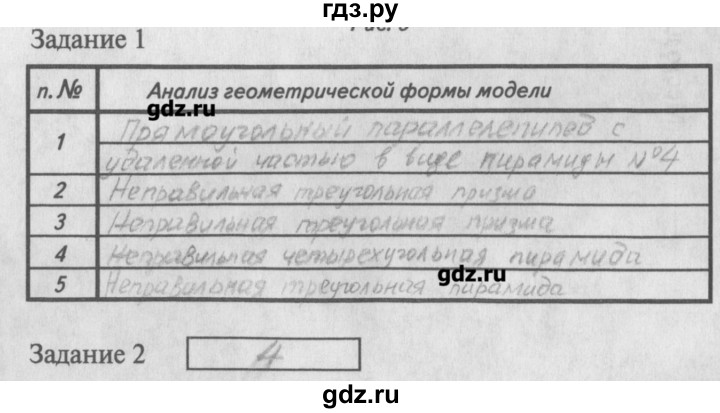 гдз.ру
Задание 1
п. № Анализ геометрической формы модели
gdz.ru
1 Прямоугольный параллелепипед с
удаленной частью в виде пирамиды №4
2 Неправильная треугольная призма
3 Неправильная треугольная призма
4 Неправильная четырехугольная пирамида
gdz.ru
5 Неправильная треугольная пирамида
Задание 2 4
gdz.ru